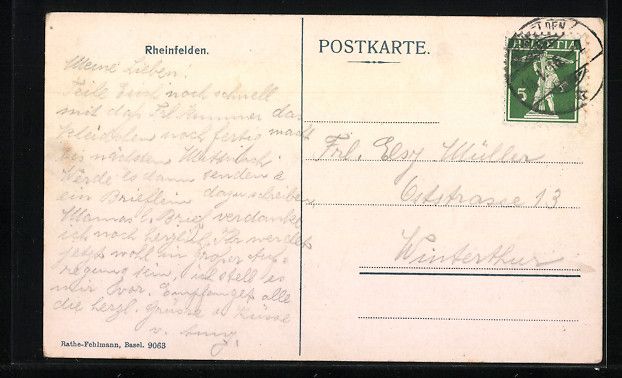 Rheinfelden.
Meine Lieben!
Teile Euch noch schnell
mit daß Frl. Kummer das
Kleidchen noch fertig macht
bis nächsten Mittwoch
werde es dann senden &
ein Brieflein dazu schreiben
Mammas Brief verdanke
ich noch herzlich. Ihr werdet
jetzt wohl in großer Auf-
regung sein, ich stell es
mir vor. Empfanget alle
die herzl. Grüsse & Küsse
v.
Rathe-Fehlmann, Basel. 9063
POSTKARTE.
HELVETIA
5
Frl. Elsy Müller
Oststrasse 13
Winterthur